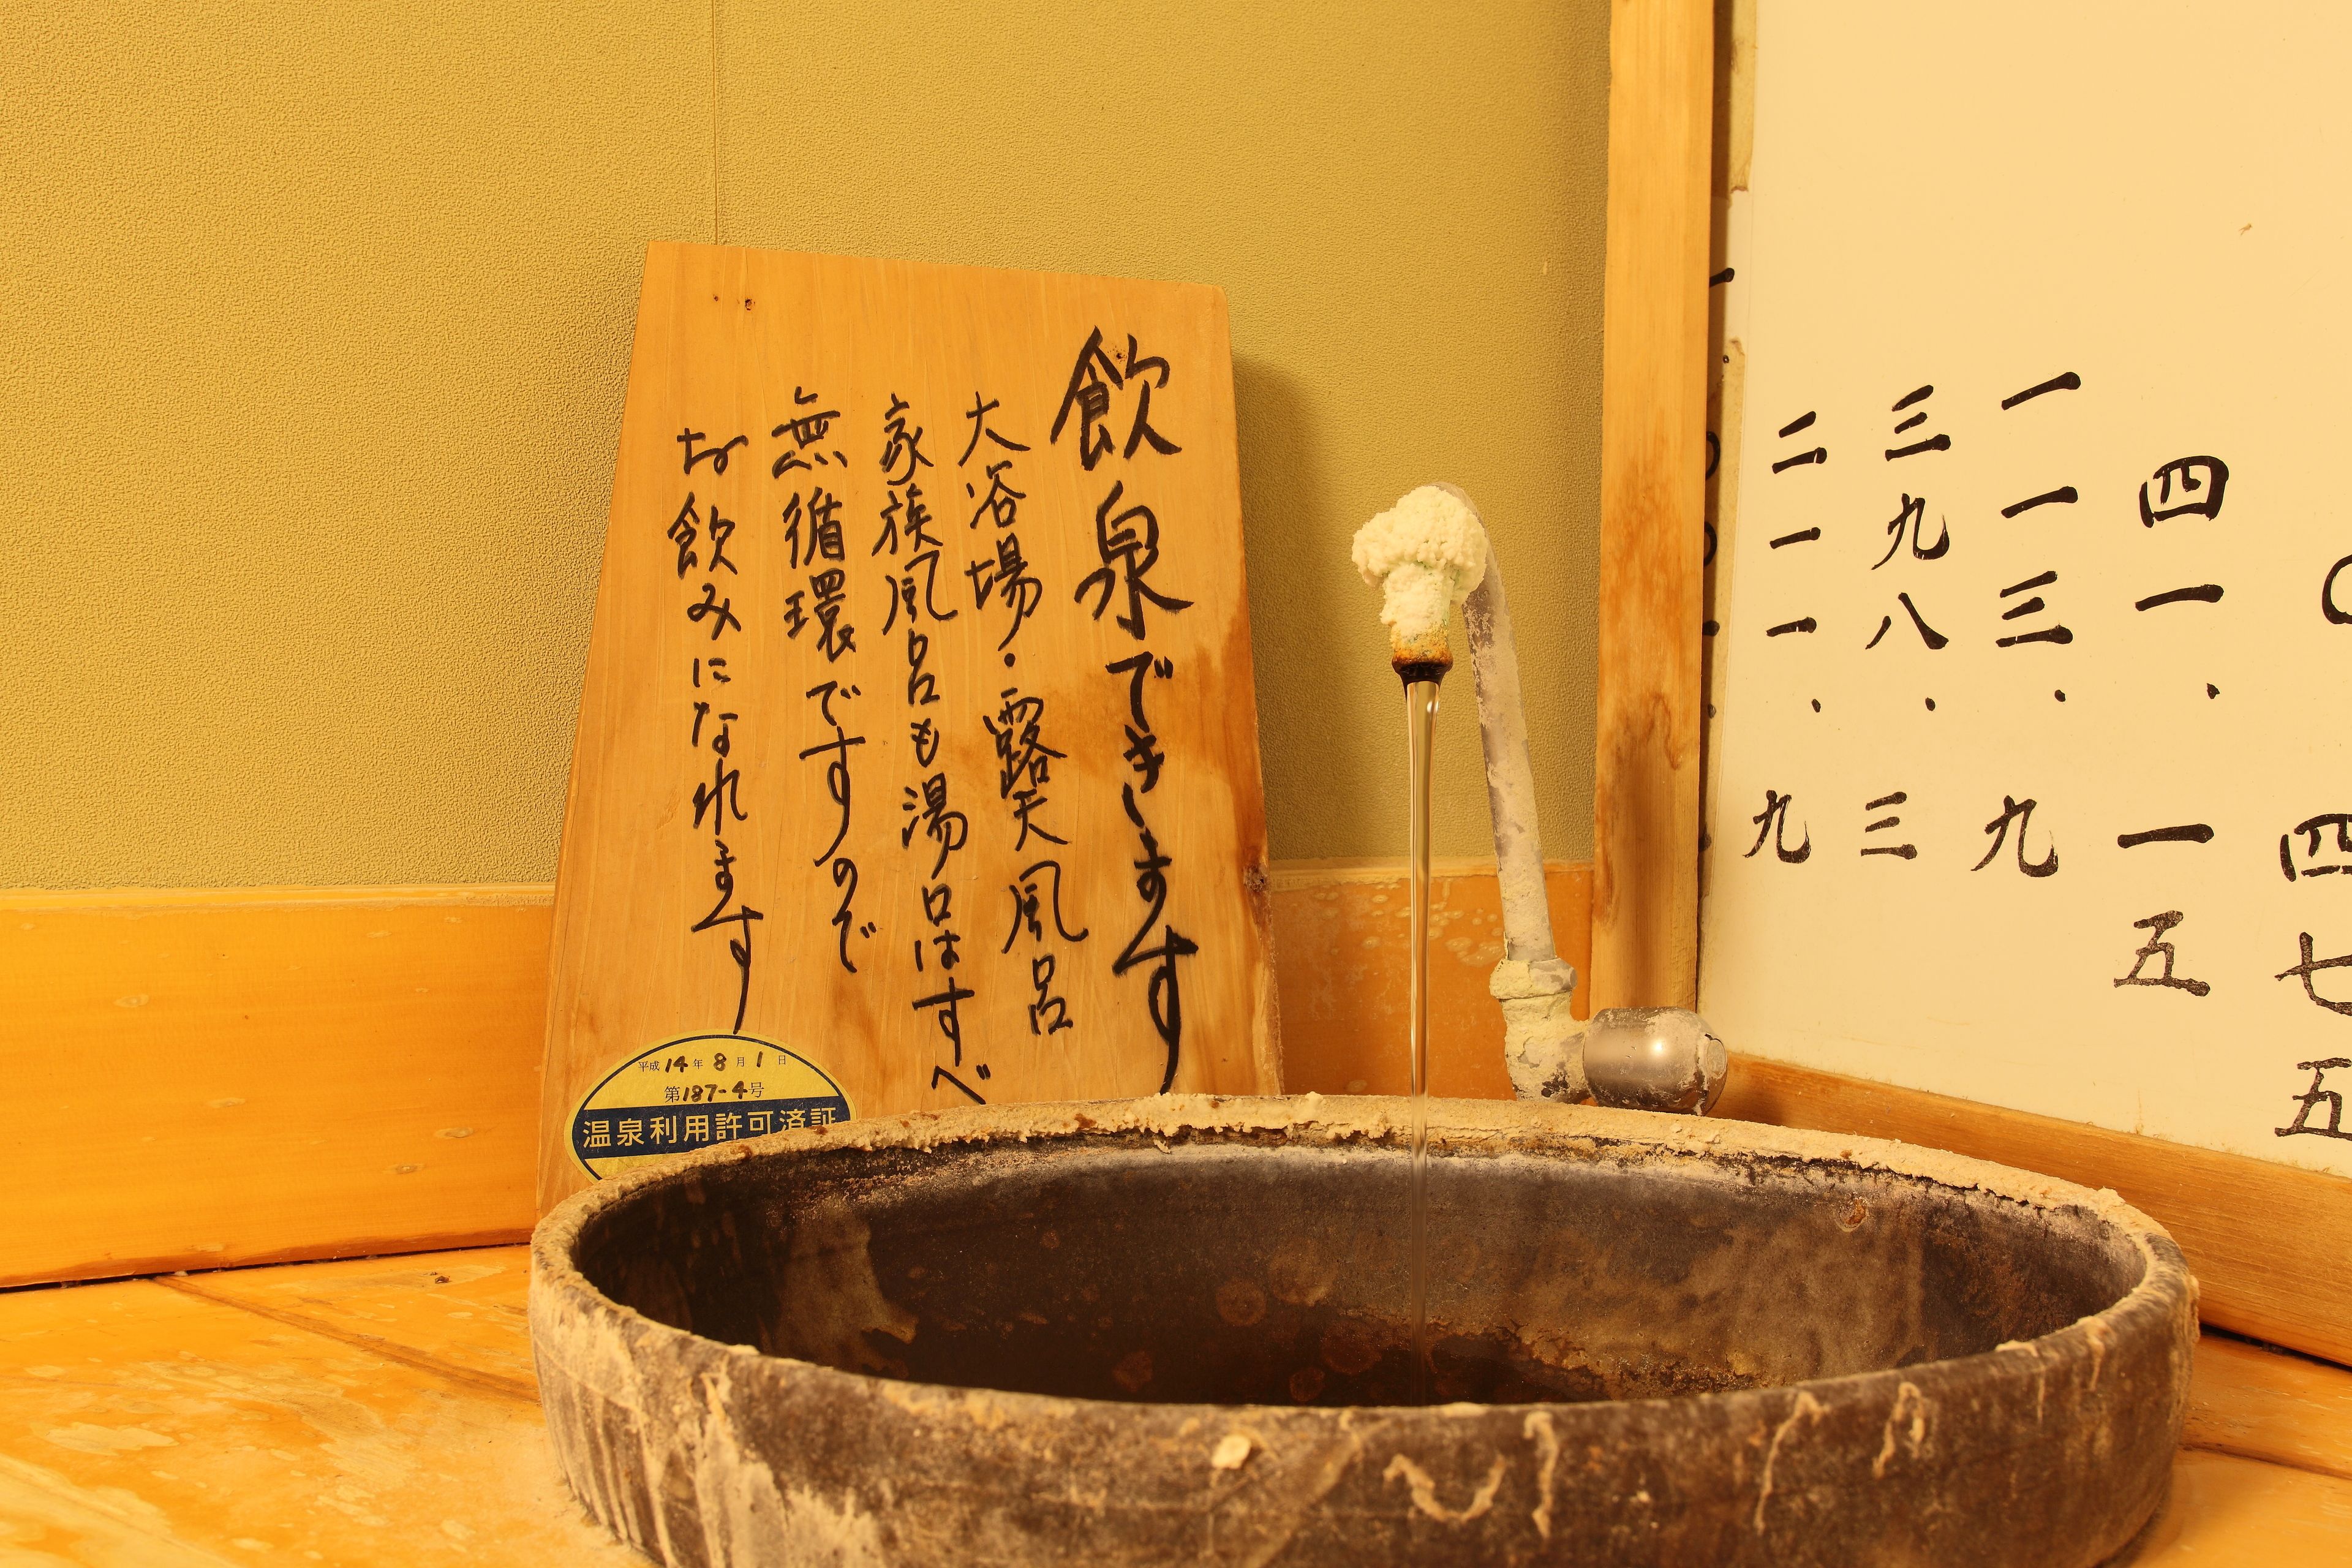 四七五
四一.一五
一一三.九
三九八.三
二一一.九
飲泉できます
大浴場・露天風呂
家族風呂も湯口はすべ
無循環ですので
お飲みになれます
平成14年8月1日
第187-4号
温泉利用許可済証